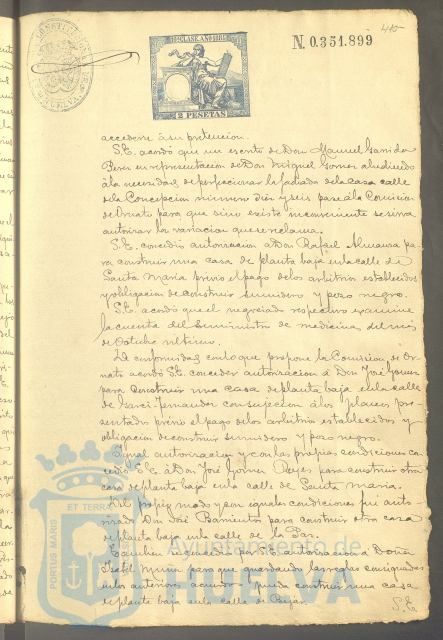 N. 0.351.899
410
2 PESETAS
accederse á su pretencion.
S.E. acordó que un escrito de Don Manuel Garrido
Perez en representacion de Don Miguel Gomez aludiendo
á la necesidad de perfeccionar la fachada de la casa calle
de la Concepcion número diez y seis pase á la Comision
de Ornato para que sino existe inconveniente se sirva
autorizar la variacion que se reclama.
S.E. concedió autorizacion á Don Rafael Almansa pa
ra construir una casa de planta baja en la calle de
Santa Maria previo el pago de los arbitrios establecidos
y obligacion de construir sumidero y pozo negro.
S.E. acordó que el negociado respectivo examine
la cuenta del Suministro de medicina del mes
de Octubre último.
De conformidad con lo que propone la Comision de Or
nato acordó S.E. conceder autorizacion á Don José Gomez
para construir una casa de planta baja en la calle
de Garci-Fernandez con sujecion á los planos pre
sentados previo el pago de los arbitrios establecidos y
obligacion de construir sumidero y pozo negro.
Igual autorizacion y con las propias condiciones con
cedió S.E. á Don José Gomez Reyes para construir otra
casa de planta baja en la calle de Santa Maria.
Del propio modo y con iguales condiciones fué auto
rizado Don José Barrientos para construir otra casa
de planta baja en la calle de la Paz.
Tambien se concedió por S.E. autorizacion á Doña
Isabel para que guardando las reglas consignadas
en los anteriores acuerdos pueda construir una casa
de planta baja en la calle de Bejar.
S.E.
PORTUS MARIS ET TERRAE
Ayuntamiento de
HUELVA